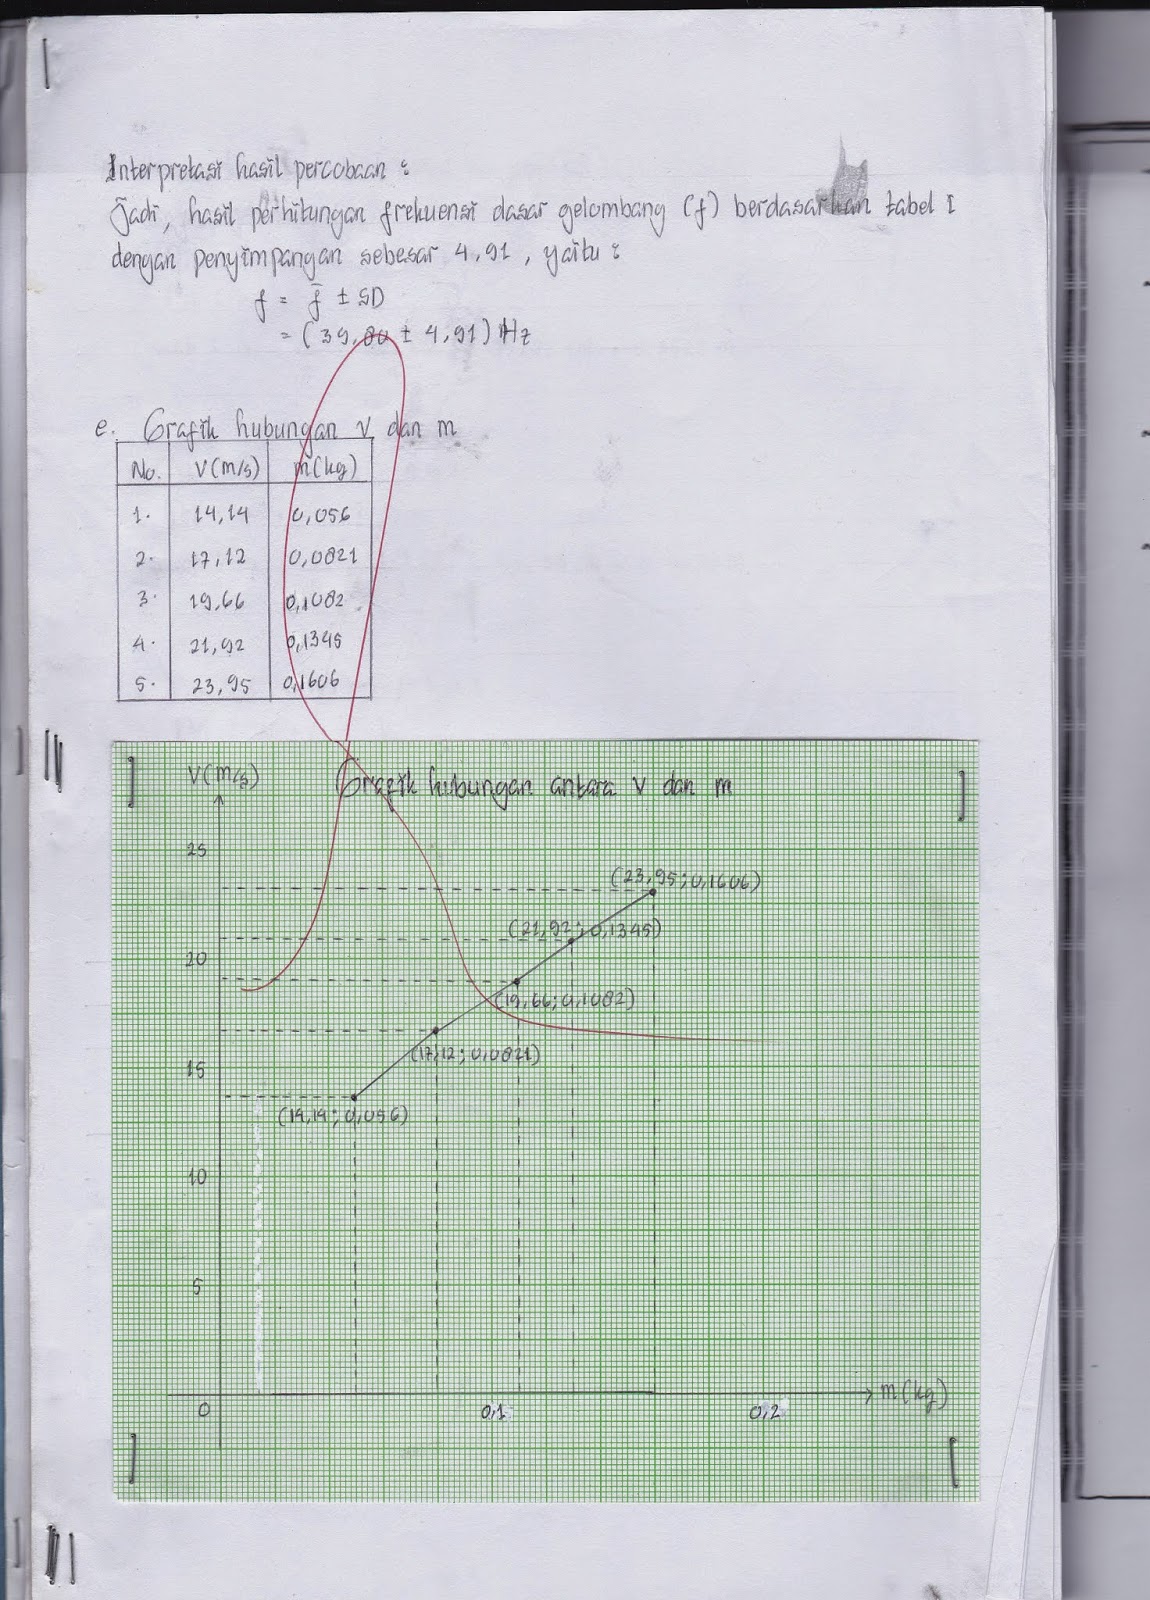 Interpretasi hasil percobaan :
Jadi, hasil perhitungan frekuensi dasar gelombang (f) berdasarkan tabel I
dengan penyimpangan sebesar 4,91 , yaitu :
f = f̄ ± SD
= ( ± 4,91) Hz
e. Grafik hubungan V dan m
No. V(m/s) m(kg)
1. 14,14 0,056
2. 17,12 0,0821
3. 19,66 0,1082
4. 21,92 0,1345
5. 23,95 0,1606
V(m/s) Grafik hubungan antara V dan m
25
(23,95;0,1606)
(21,92;0,1345)
20
(19,66;0,1082)
(17,12;0,0821)
15
(14,14;0,056)
10
5
m(kg)
0 0,1 0,2